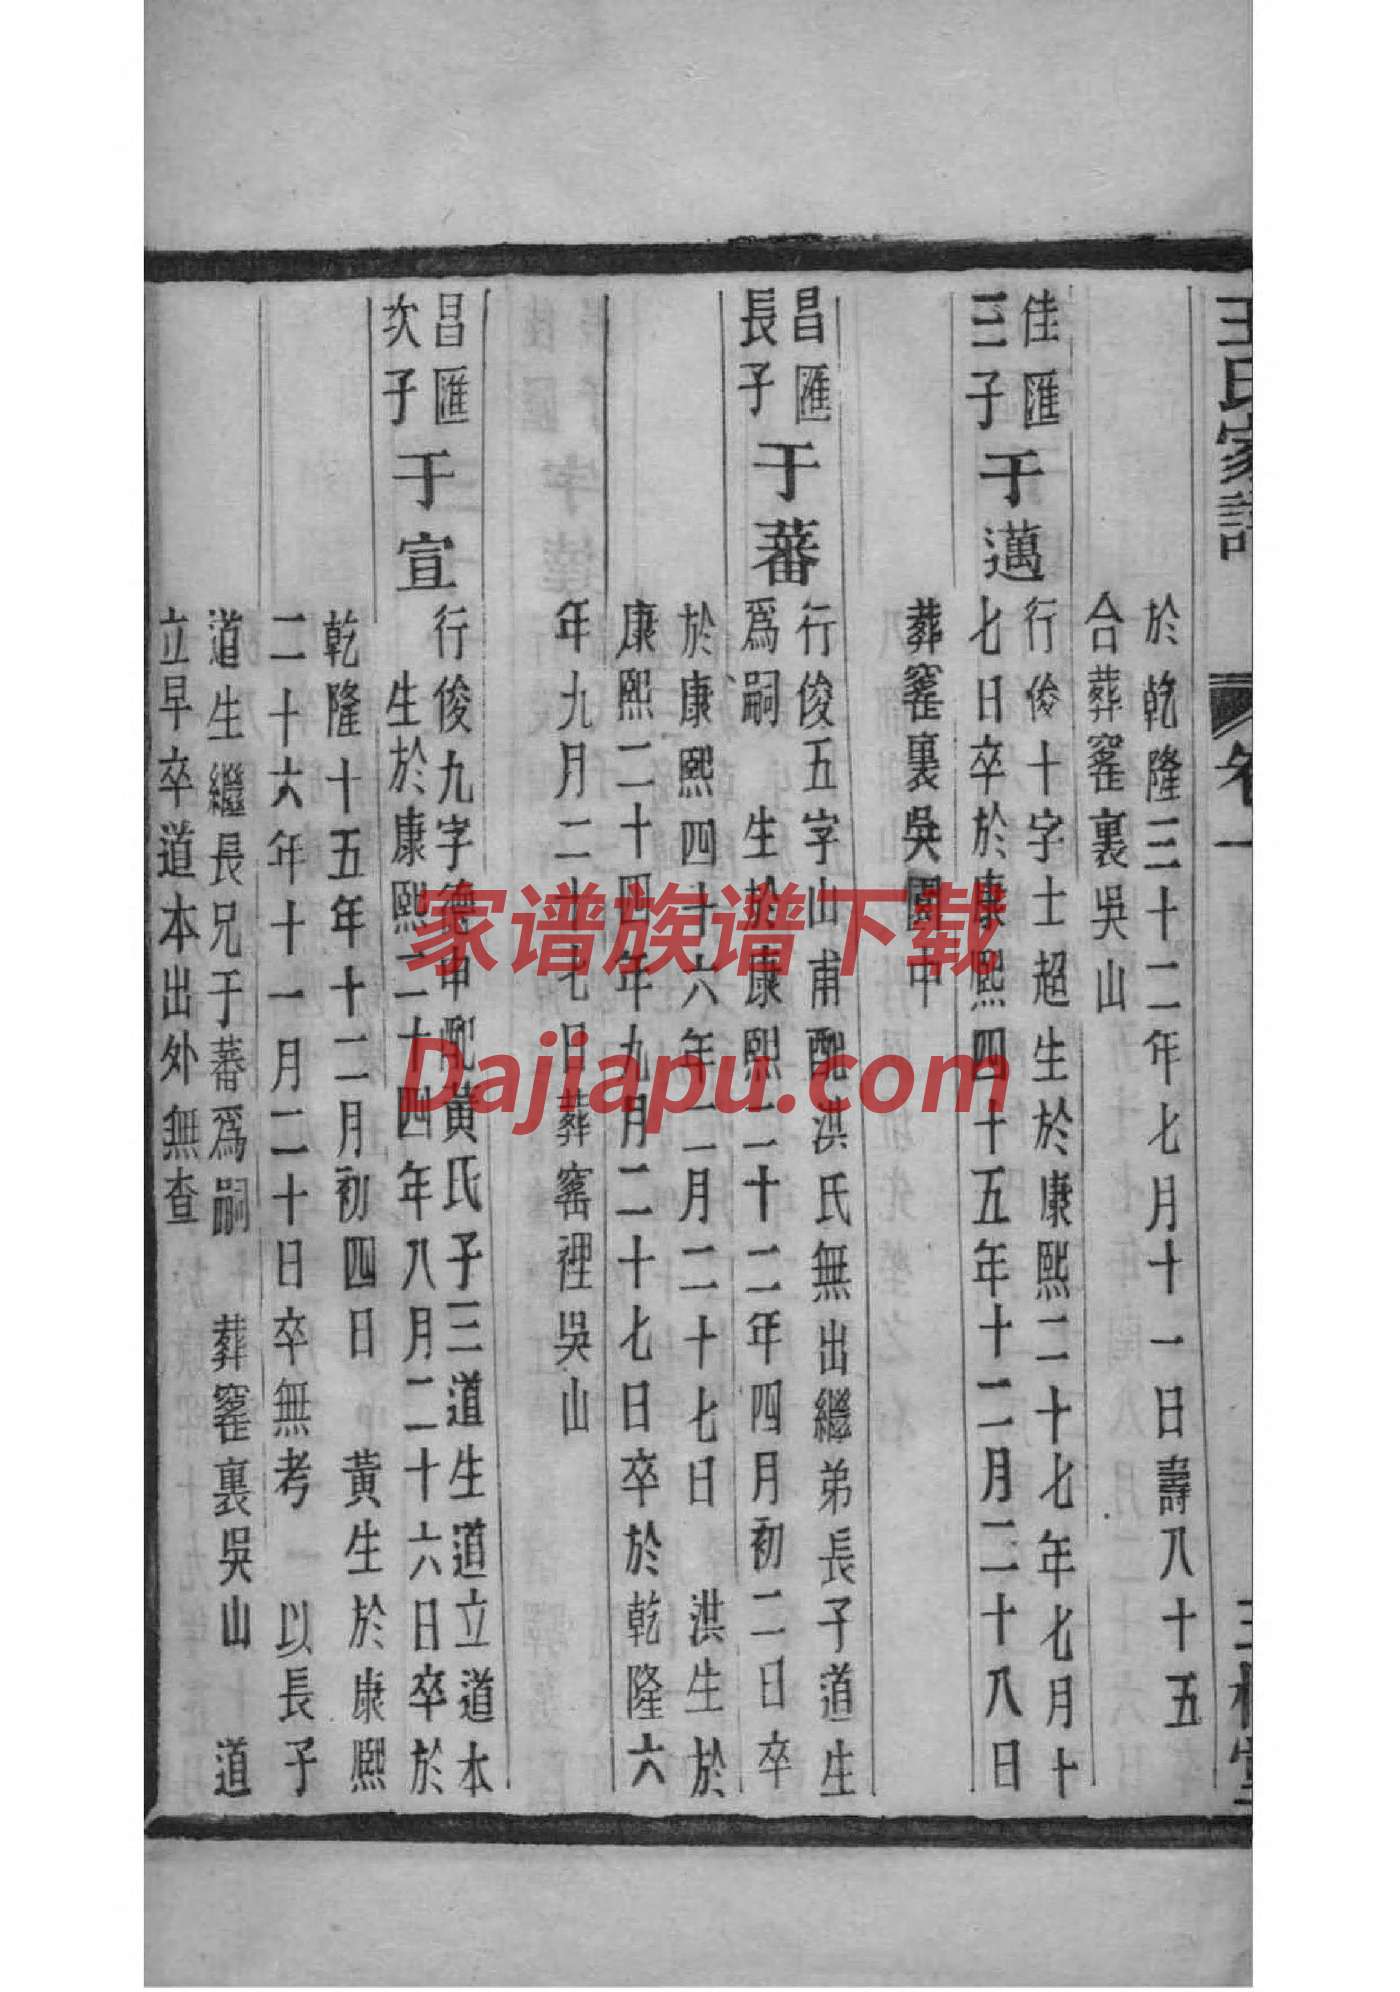 王氏家譜 卷一 三槐堂
於乾隆三十二年七月十一日壽八十五
合葬窰裏吳山
佳匯三子 于邁 行俊十字士超生於康熙二十七年七月十
七日卒於康熙四十五年十二月二十八日
葬窰裏吳園中
昌匯長子 于蕃 行俊五字山甫配洪氏無出繼弟長子道生
爲嗣 生於康熙二十二年四月初二日卒
於康熙四十六年二月二十七日 洪生於
康熙二十四年九月二十七日卒於乾隆六
年九月二十七日葬窰裡吳山
昌匯次子 于宣 行俊九字德中配黃氏子三道生道立道本
生於康熙二十四年八月二十六日卒於
乾隆十五年十二月初四日 黃生於康熙
二十六年十一月二十日卒無考 以長子
道生繼長兄于蕃爲嗣 葬窰裏吳山 道
立早卒道本出外無查
家谱族谱下载
Dajiapu.com